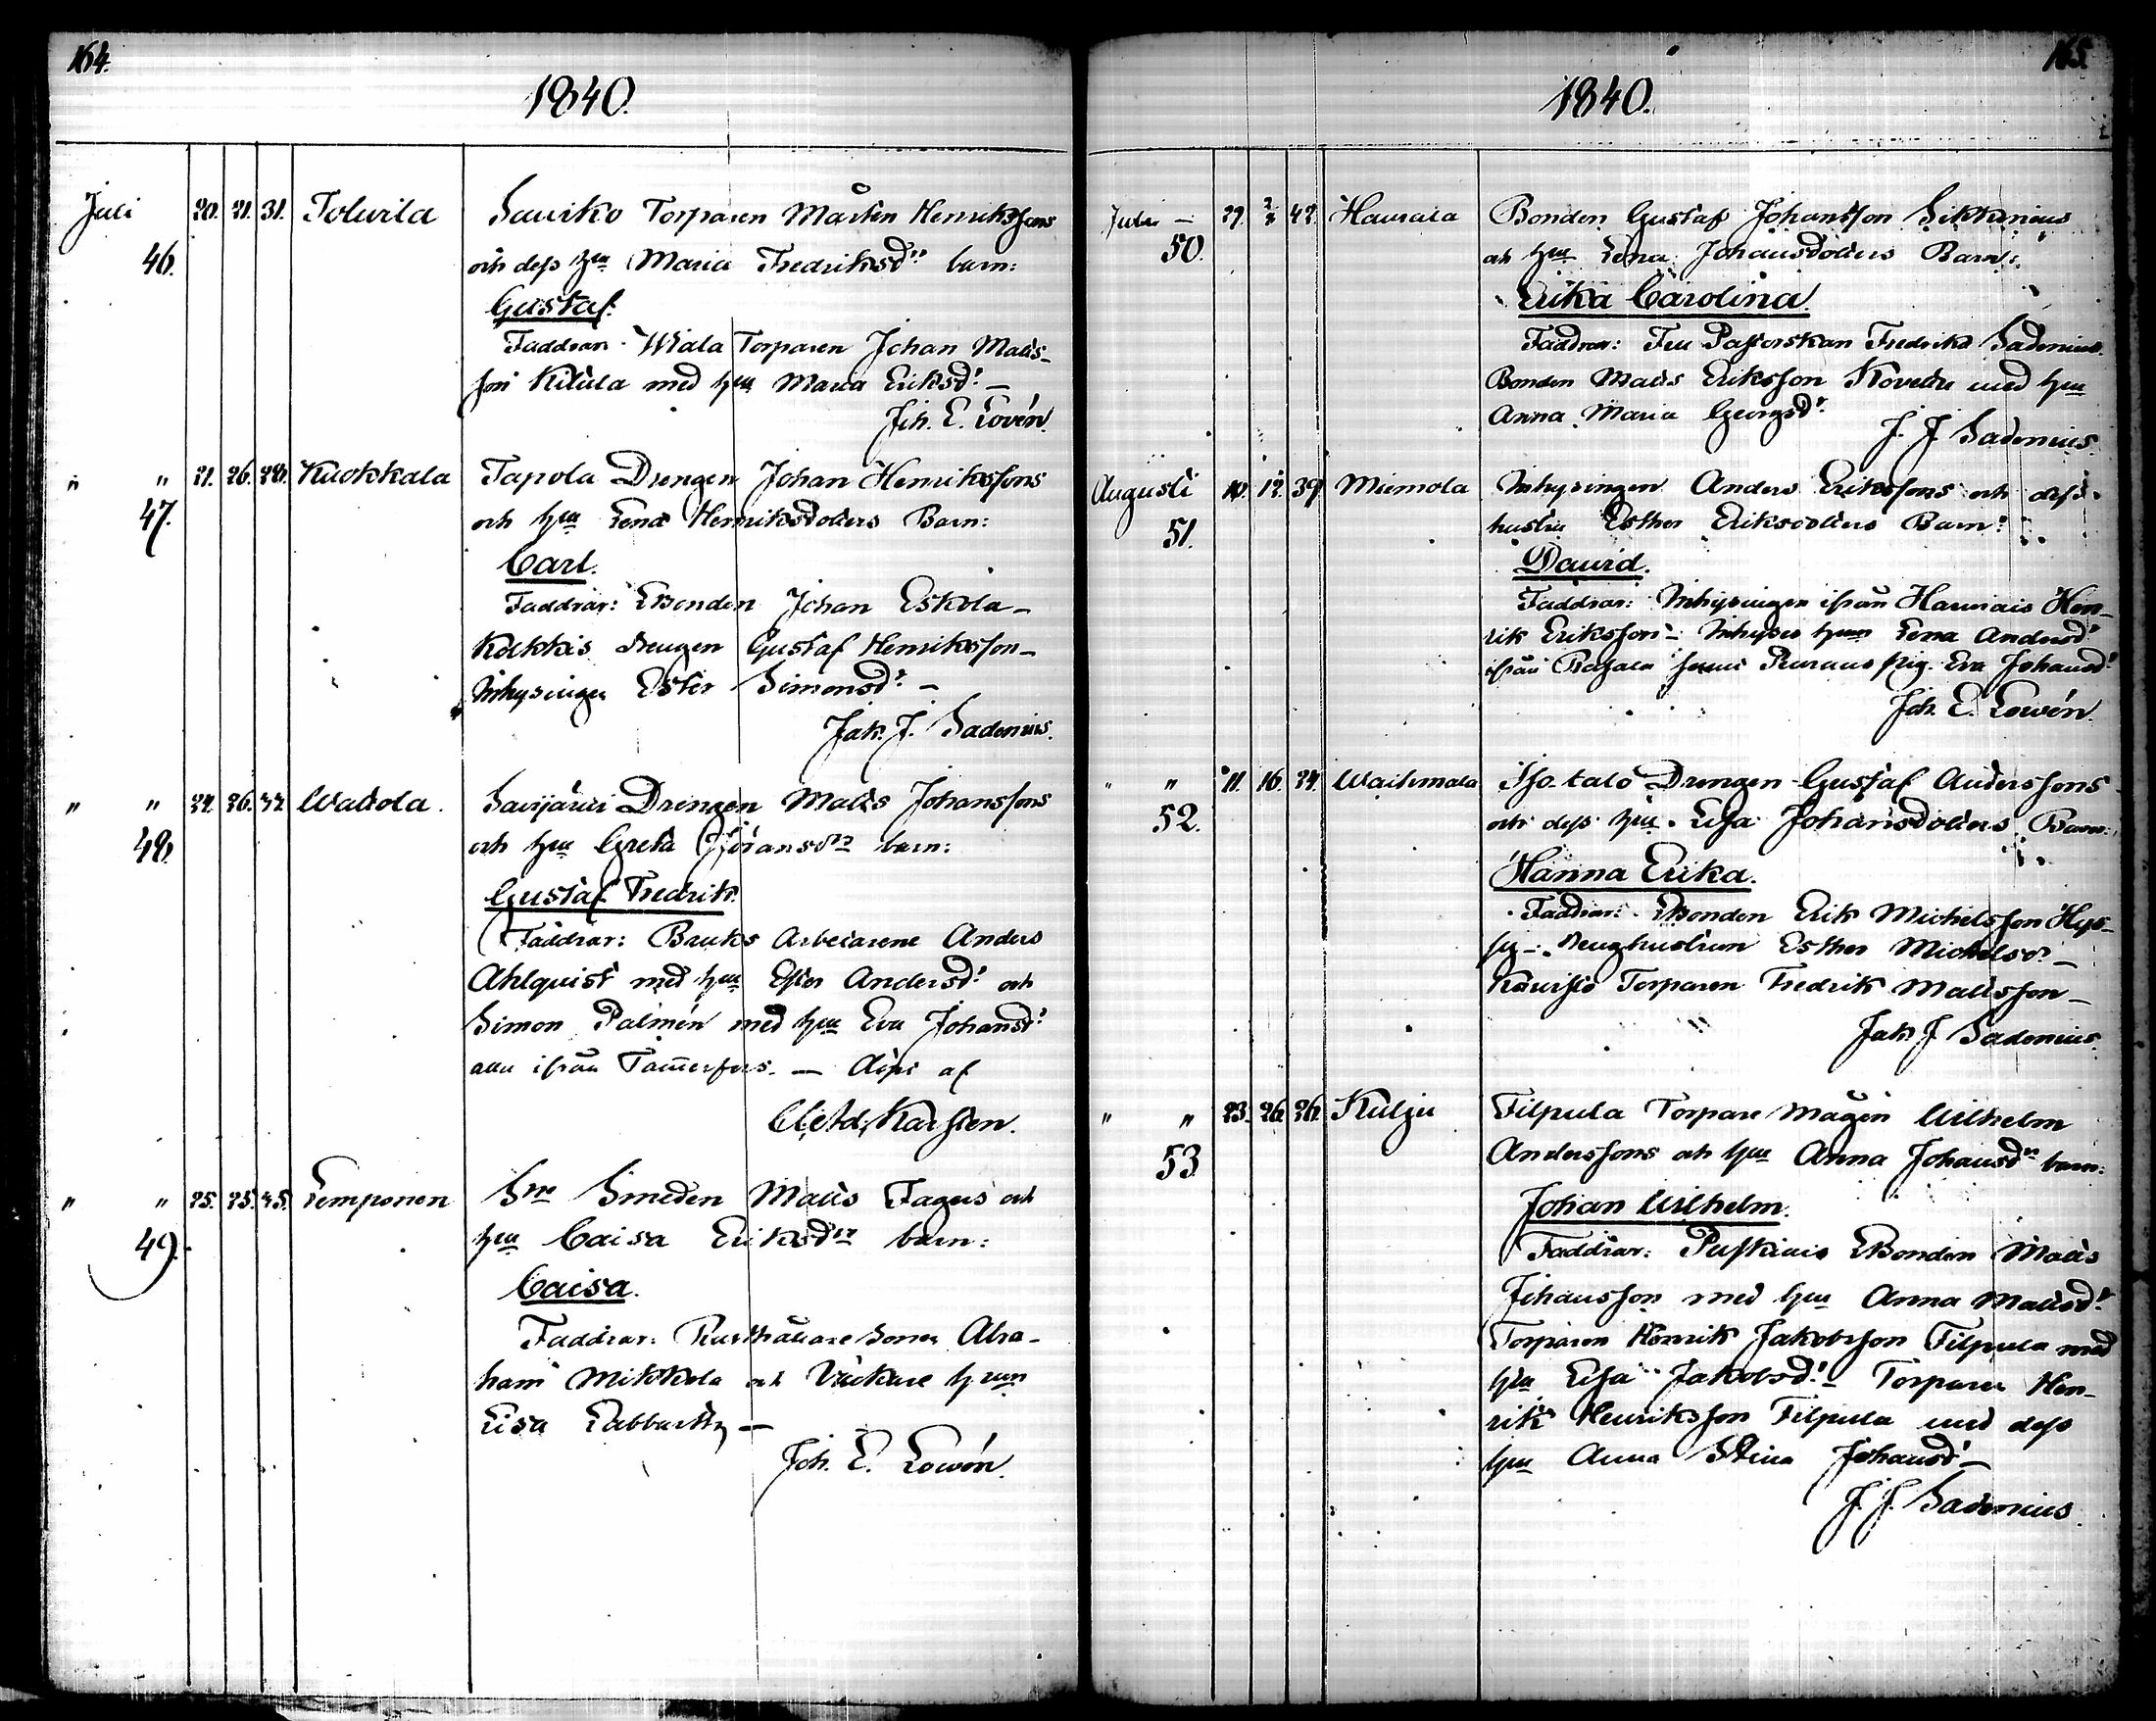 164.
1840.
Juli 20. 21. 31. Tolvila Sauriko Torparen Mårten Henrikssons
46. och dess hu Maria Fredriksdrs barn:
Gustaf.
Faddrar: Wiala Torparen Johan Matts-
son Kitula med hu Maria Eriksdr. —
Joh. E. Lovén.
" " 21. 26. 28. Kuokkala Tapola Drengen Johan Henrikssons
47. och hu Lena Henriksdotters Barn:
Carl.
Faddrar: Bonden Johan Eskola —
drengen Gustaf Henriksson —
Inhysingen Ester Simonsdr. —
Jak. J. Sadenius.
" " 24. 26. Drengen Matts Johanssons
48. och hu Greta Göransdrs barn:
Gustaf Fredrik.
Faddrar: Bruks Arbetarene Anders
Ahlquist med hu Ester Andersdr. och
Simon Palmén med hu Eva Johansdr.
alla ifrån Tammerfors. — döpt af
Karsten.
" " 25. 25. 35. Lemponen Smeden Matts Fagers och
49. hu Caisa Eriksdrs barn:
Caisa.
Faddrar: Rusthållare Sonen Abra-
ham Mikkola och hun
Lisa —
Joh. E. Lowén.
165.
1840.
Juli — 29. 2/8 42. Bonden Gustaf Johansson
50. och hu Lena Johansdotters Barn:
Erika Carolina.
Faddrar: Fru Pastorskan Fredrika Sadenius.
Bonden Matts Eriksson med hu
Anna Maria Georgsdr.
J. J. Sadenius.
Augusti 10. 12. 39. Miemola Inhysingen Anders Erikssons och dess
51. hustru Esther Eriksdotters Barn:
David.
Faddrar: Inhysingen ifrån Hen-
rik Eriksson — Inhyses hun Lena Andersdr
ifrån pig. Eva Johansdr.
Joh. E. Lowén.
" " 11. 16. 24. Iso-talo Drengen Gustaf Anderssons
52. och dess hu Lisa Johansdotters Barn:
Hanna Erika.
Faddrar: Bonden Erik Michelsson
drenghustrun Esther Michelsdr —
Torparen Fredrik Mattsson —
Jak J Sadenius.
" " 23. 26. 26. Kulju Filpula Torpare Mågen Wilhelm
53 Anderssons och hu Anna Johansdrs barn:
Johan Wilhelm.
Faddrar: Bonden Matts
Johansson med hu Anna Mattsdr.
Torparen Henrik Jakobsson Filpula med
hu Lisa Jakobsdr. — Torparen Hen-
rik Henriksson Filpula med dess
hu Anna Stina Johansdr —
J. J. Sadenius.